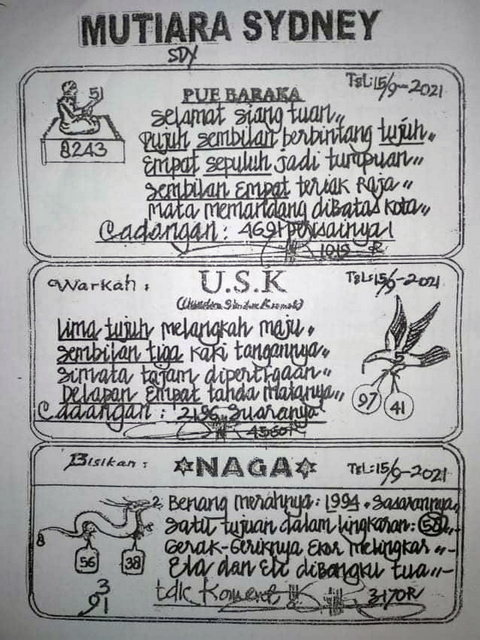 MUTIARA SYDNEY
SDY
Tgl: 15/9-2021
51
8243
PUE BARAKA
Selamat siang tuan,,
Pujuh sembilan berbintang tujuh,
Empat sepuluh jadi tumpuan,,
Sembilan Empat teriak Raja,,
Mata memandang dibatas kota,,
Cadangan: 4691 perisainya
1919 R
Warkah:
U.S.K
Tgl: 15/9-2021
Lima tujuh melangkah maju,
Sembilan tiga kaki tangannya,
Simata tajam dipertigaan,,
Delapan Empat tanda matanya,,
Cadangan: 2196 Suaranya
4580R
97
41
Bisikan:
NAGA
Tgl: 15/9-2021
Benang merahnya: 1994. Sasarannya,
Satu tujuan dalam lingkaran:
Gerak-Geriknya Ekor melingkar,,-
Ela dan Ele dibangku tua,,-
tdk Komen
3170R
2
8
56
38
3
91